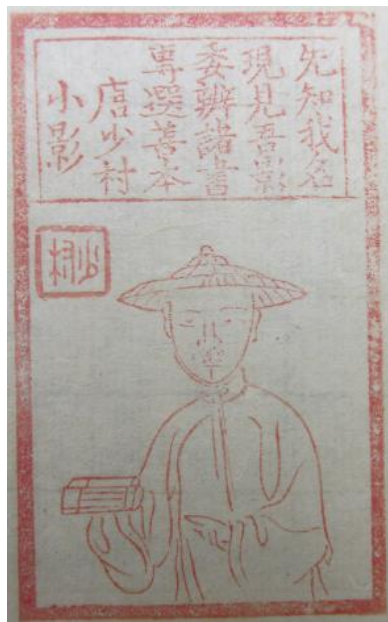 先知我名
現見吾影
委辦諸書
專選善本
唐少村
小影
少村